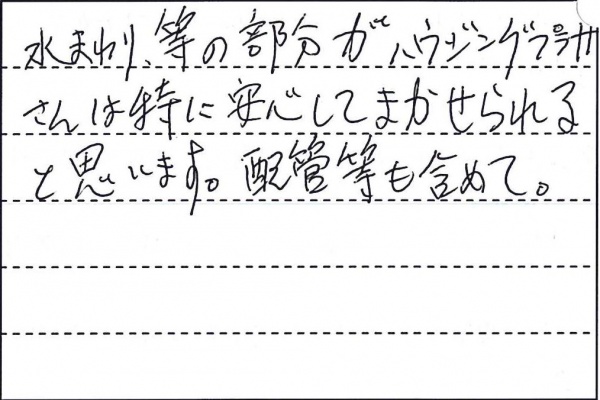 水まわり、等の部分がハウジングプラザ
さんは特に安心してまかせられる
と思います。配管等も含めて。